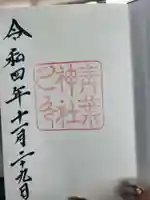 青葉
神社
之印
令和四年十一月二十九日